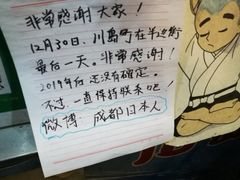 非常感谢大家！
12月30日、川岛町在半边街
最后一天。非常感谢！
2019年后还没有确定。
不过、一直保持联系吧！
微博：成都日本人